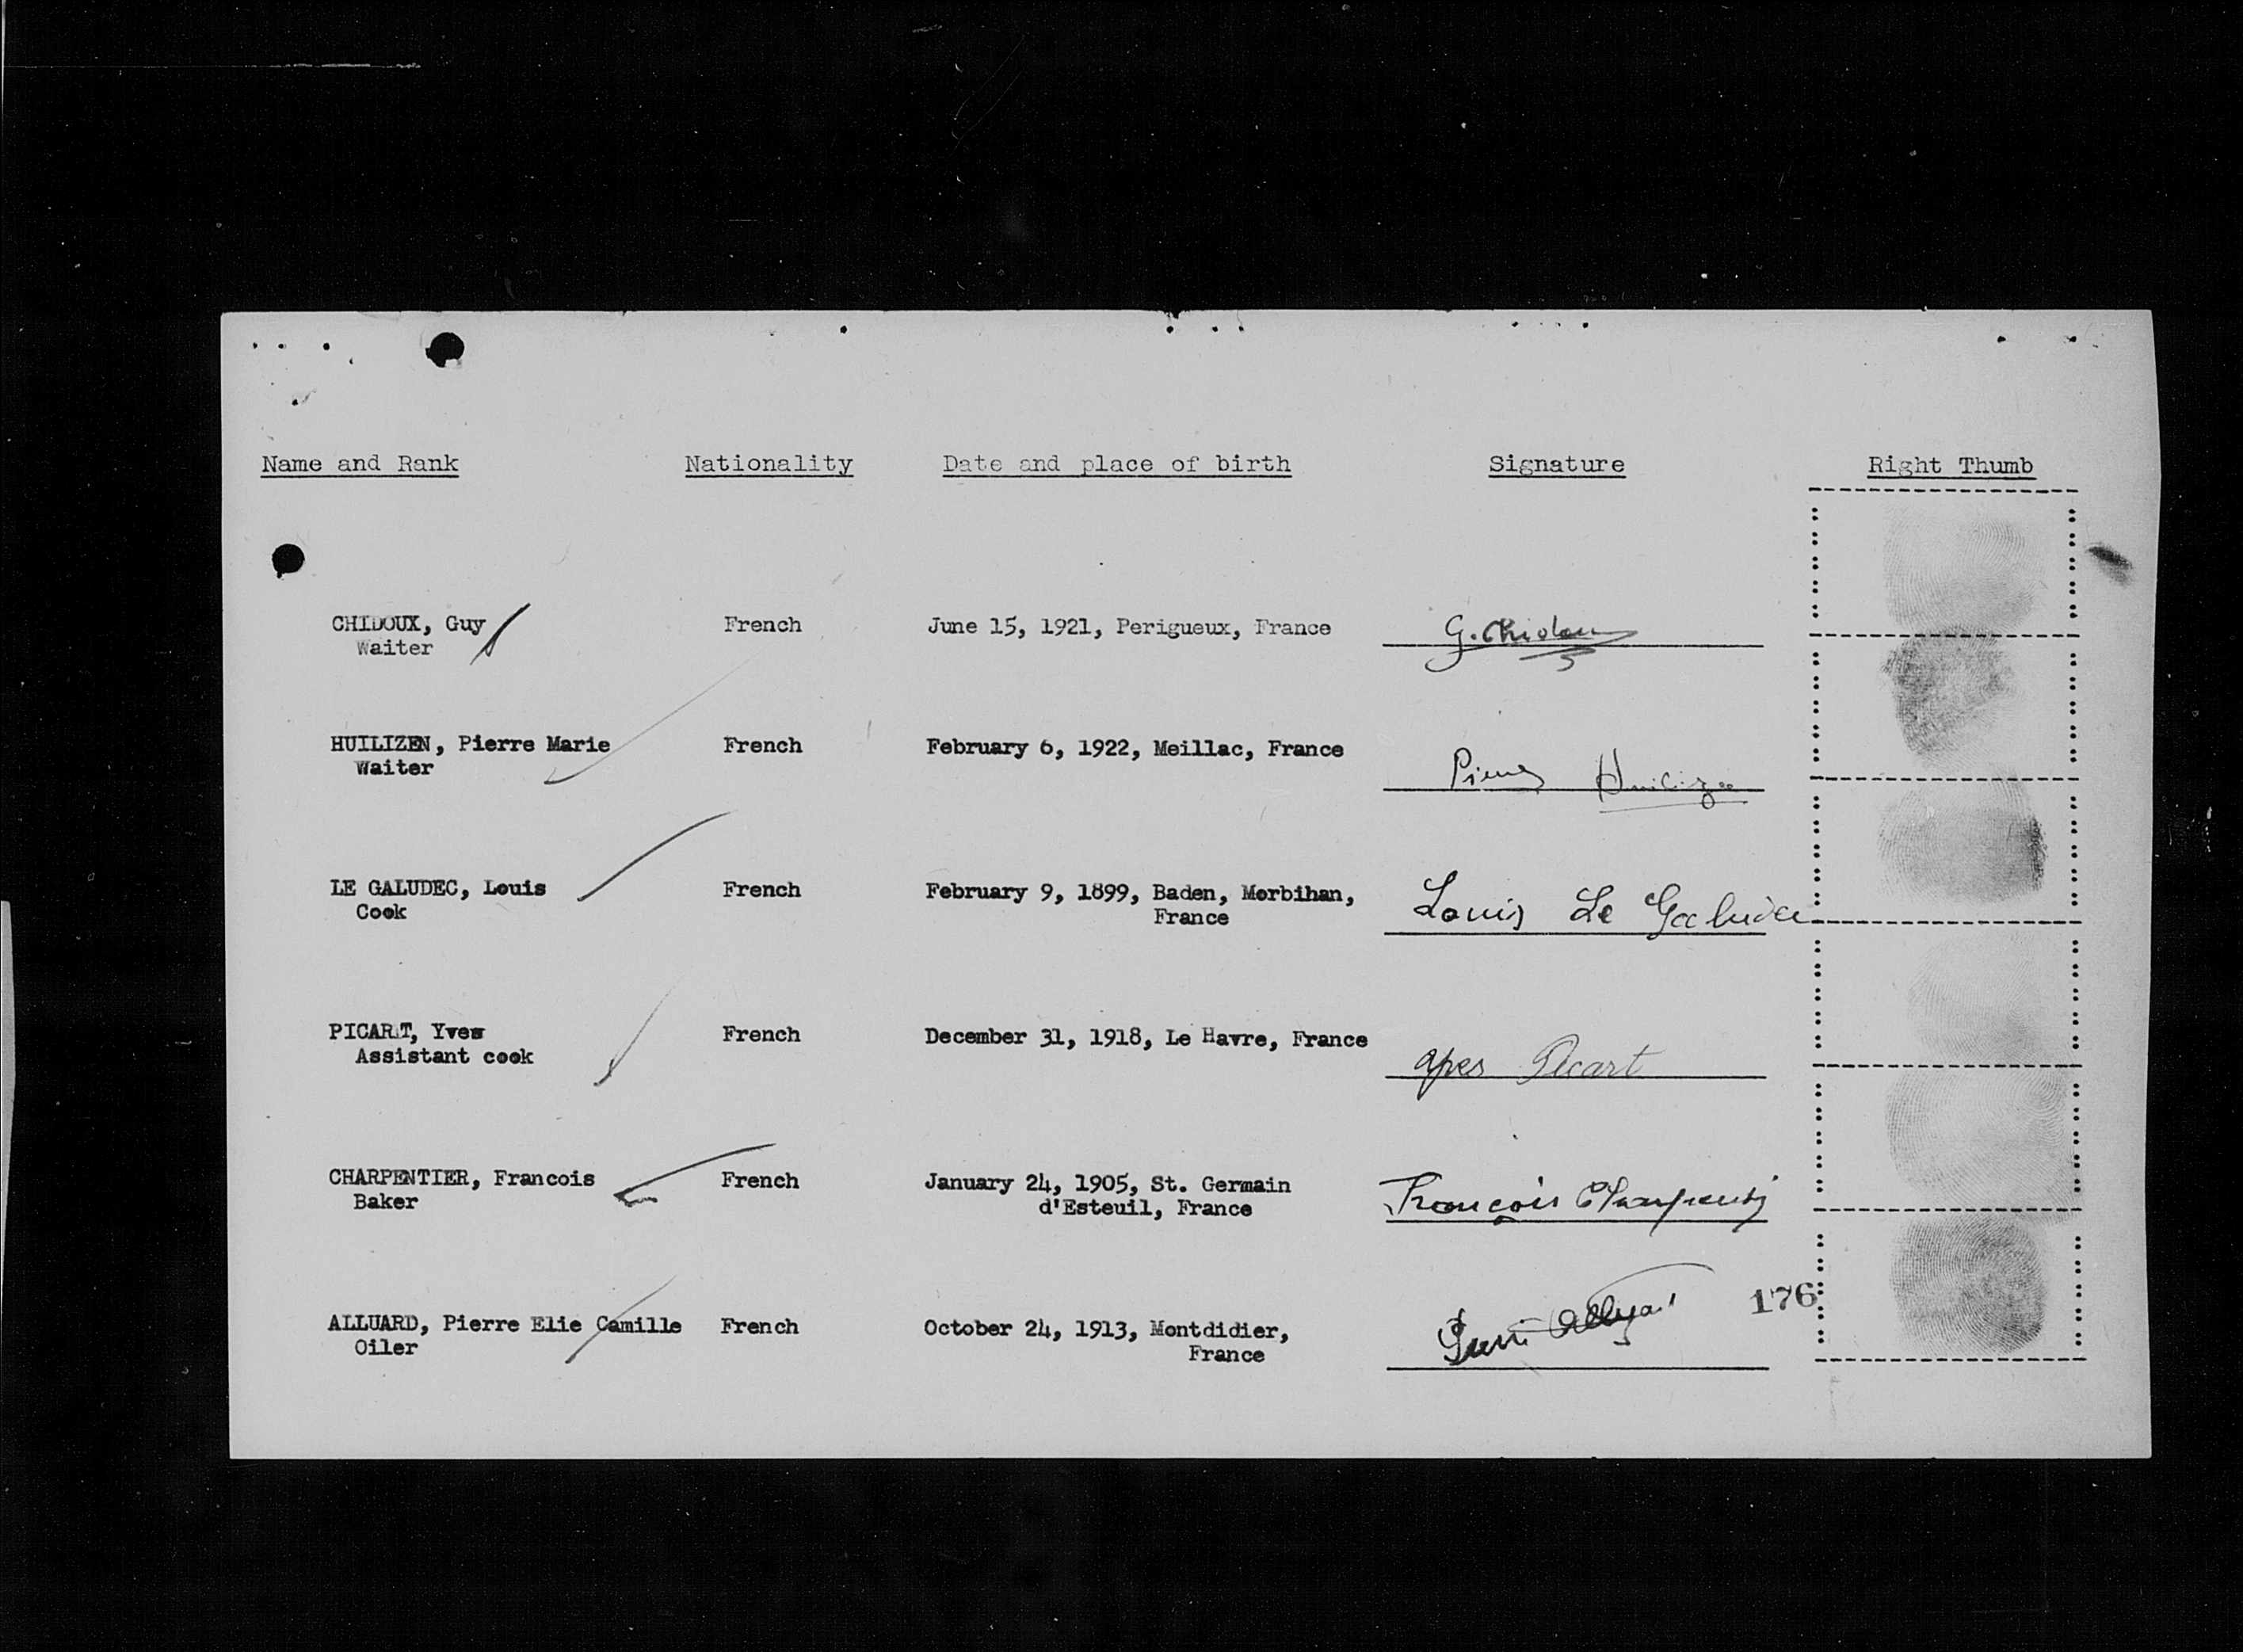 Name and Rank Nationality Date and place of birth Signature Right Thumb
CHIDOUX, Guy French June 15, 1921, Perigueux, France G. Chidoux
Waiter
HUILIZEN, Pierre Marie French February 6, 1922, Meillac, France
Waiter
Pierre Huilizen
LE GALUDEC, Louis French February 9, 1899, Baden, Morbihan,
Cook France Louis Le Galudec
PICART, Yves French December 31, 1918, Le Havre, France
Assistant cook Picart
CHARPENTIER, Francois French January 24, 1905, St. Germain
Baker d'Esteuil, France François Charpentier
176
ALLUARD, Pierre Elie Camille French October 24, 1913, Montdidier,
Oiler France Pierre Alluard